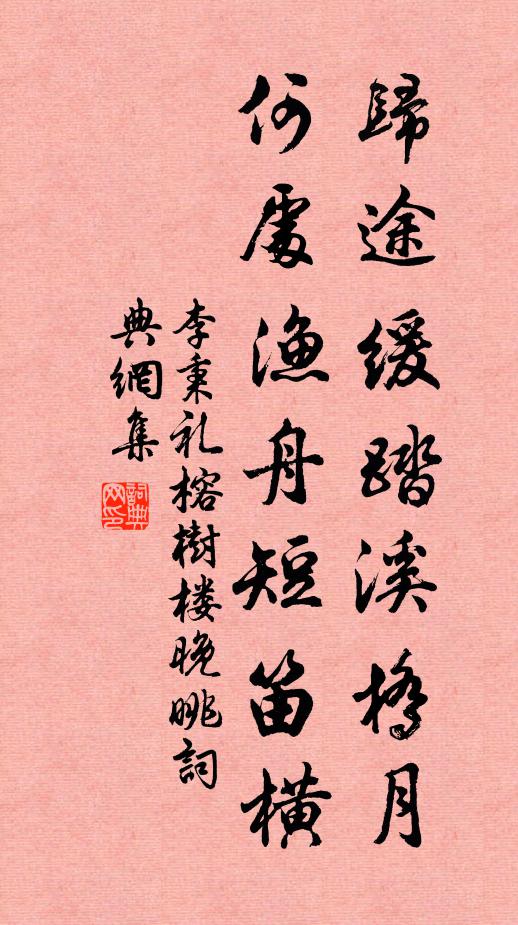 歸途緩踏溪橋月
何處漁舟短笛橫
李秉礼榕樹楼晚眺詞
典網集
詞典
网印